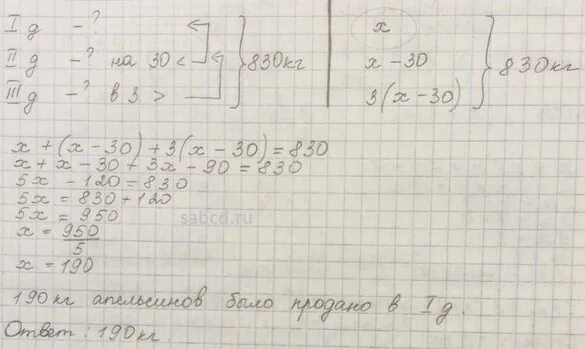 I д - ?
II д - ? на 30 <
III д - ? в 3 >
} 830 кг
x
x - 30
3(x - 30)
} 830 кг
x + (x - 30) + 3(x - 30) = 830
x + x - 30 + 3x - 90 = 830
5x - 120 = 830
5x = 830 + 120
5x = 950
sabcd.ru
x = 950/5
x = 190
190кг апельсинов было продано в I д.
Ответ: 190кг.